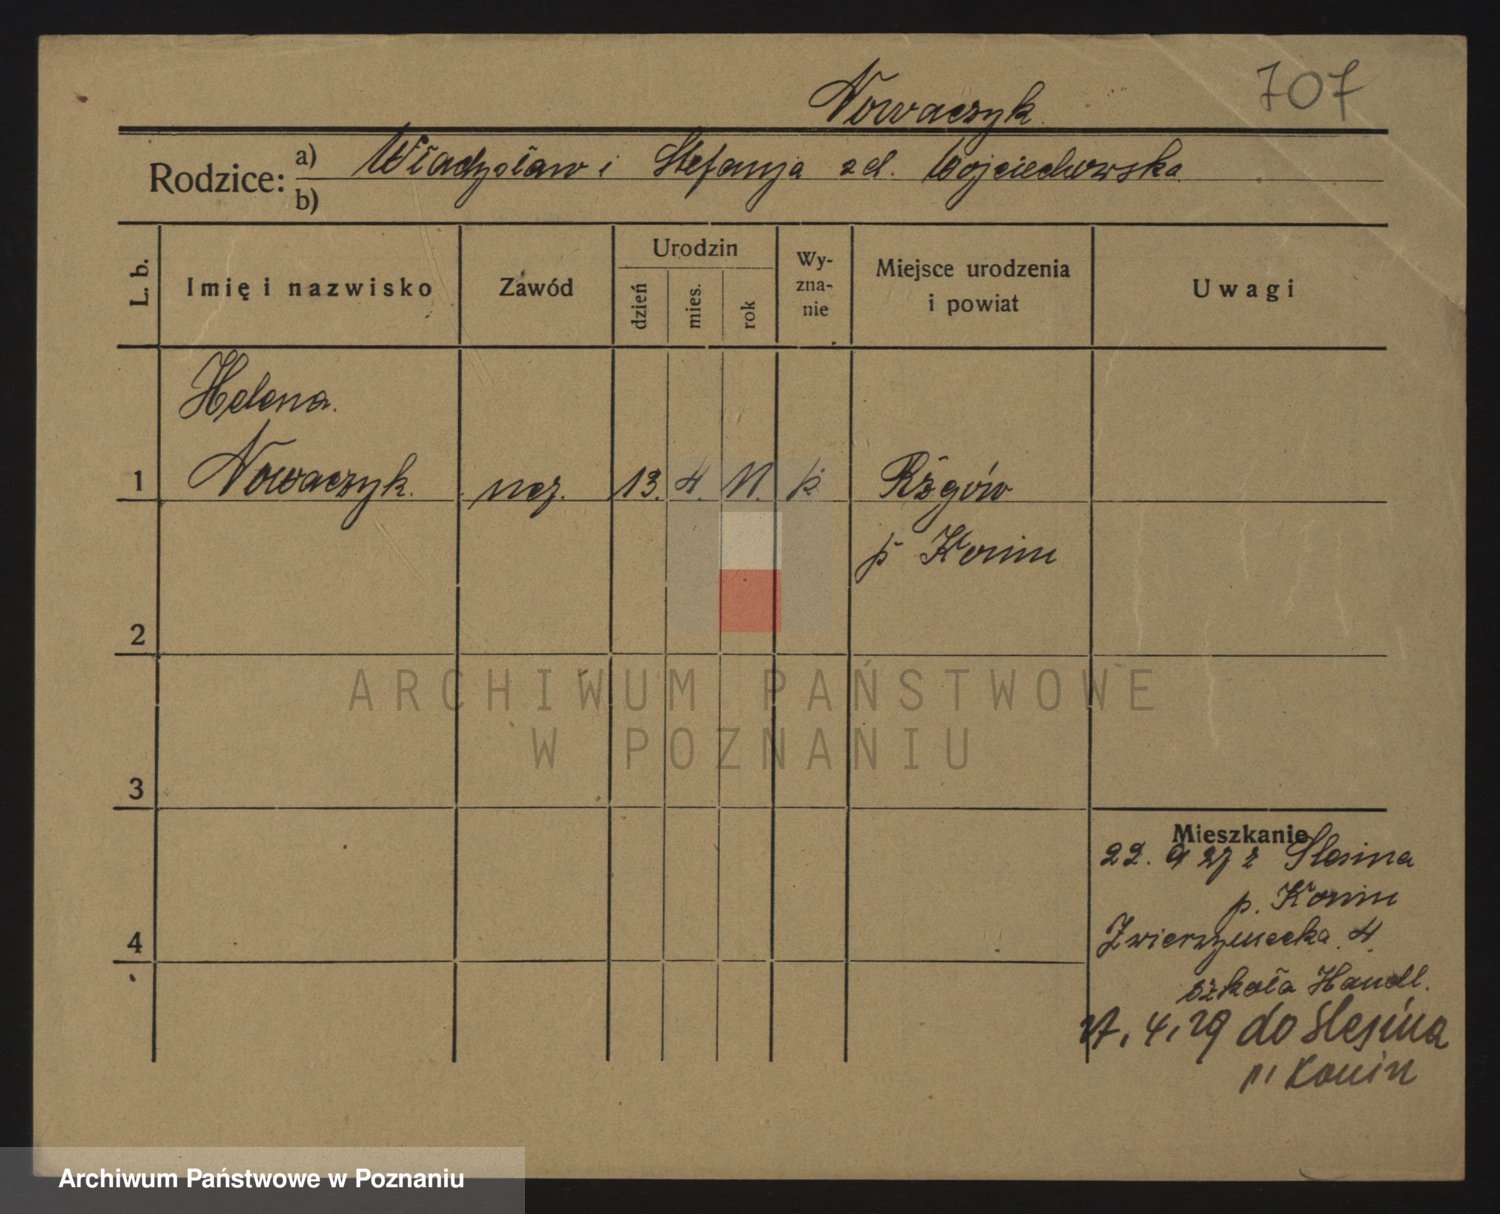 707
Nowaczyk.
Rodzice: a) Władysław i Stefanja zd. Wojciechowska
b)
L. b. Imię i nazwisko Zawód Urodzin dzień mies. rok Wy-zna-nie Miejsce urodzenia i powiat Uwagi
Helena
1 Nowaczyk. ucz. 13. 4. 11. k. Rzgów
p. Konin
2
ARCHIWUM PAŃSTWOWE
W POZNANIU
3
Mieszkanie
22. 9 27 z Ślesina
p. Konin
Zwierzyniecka 4.
szkoła Handl.
4
4. 29 do Ślesina
p. Konin
Archiwum Państwowe w Poznaniu